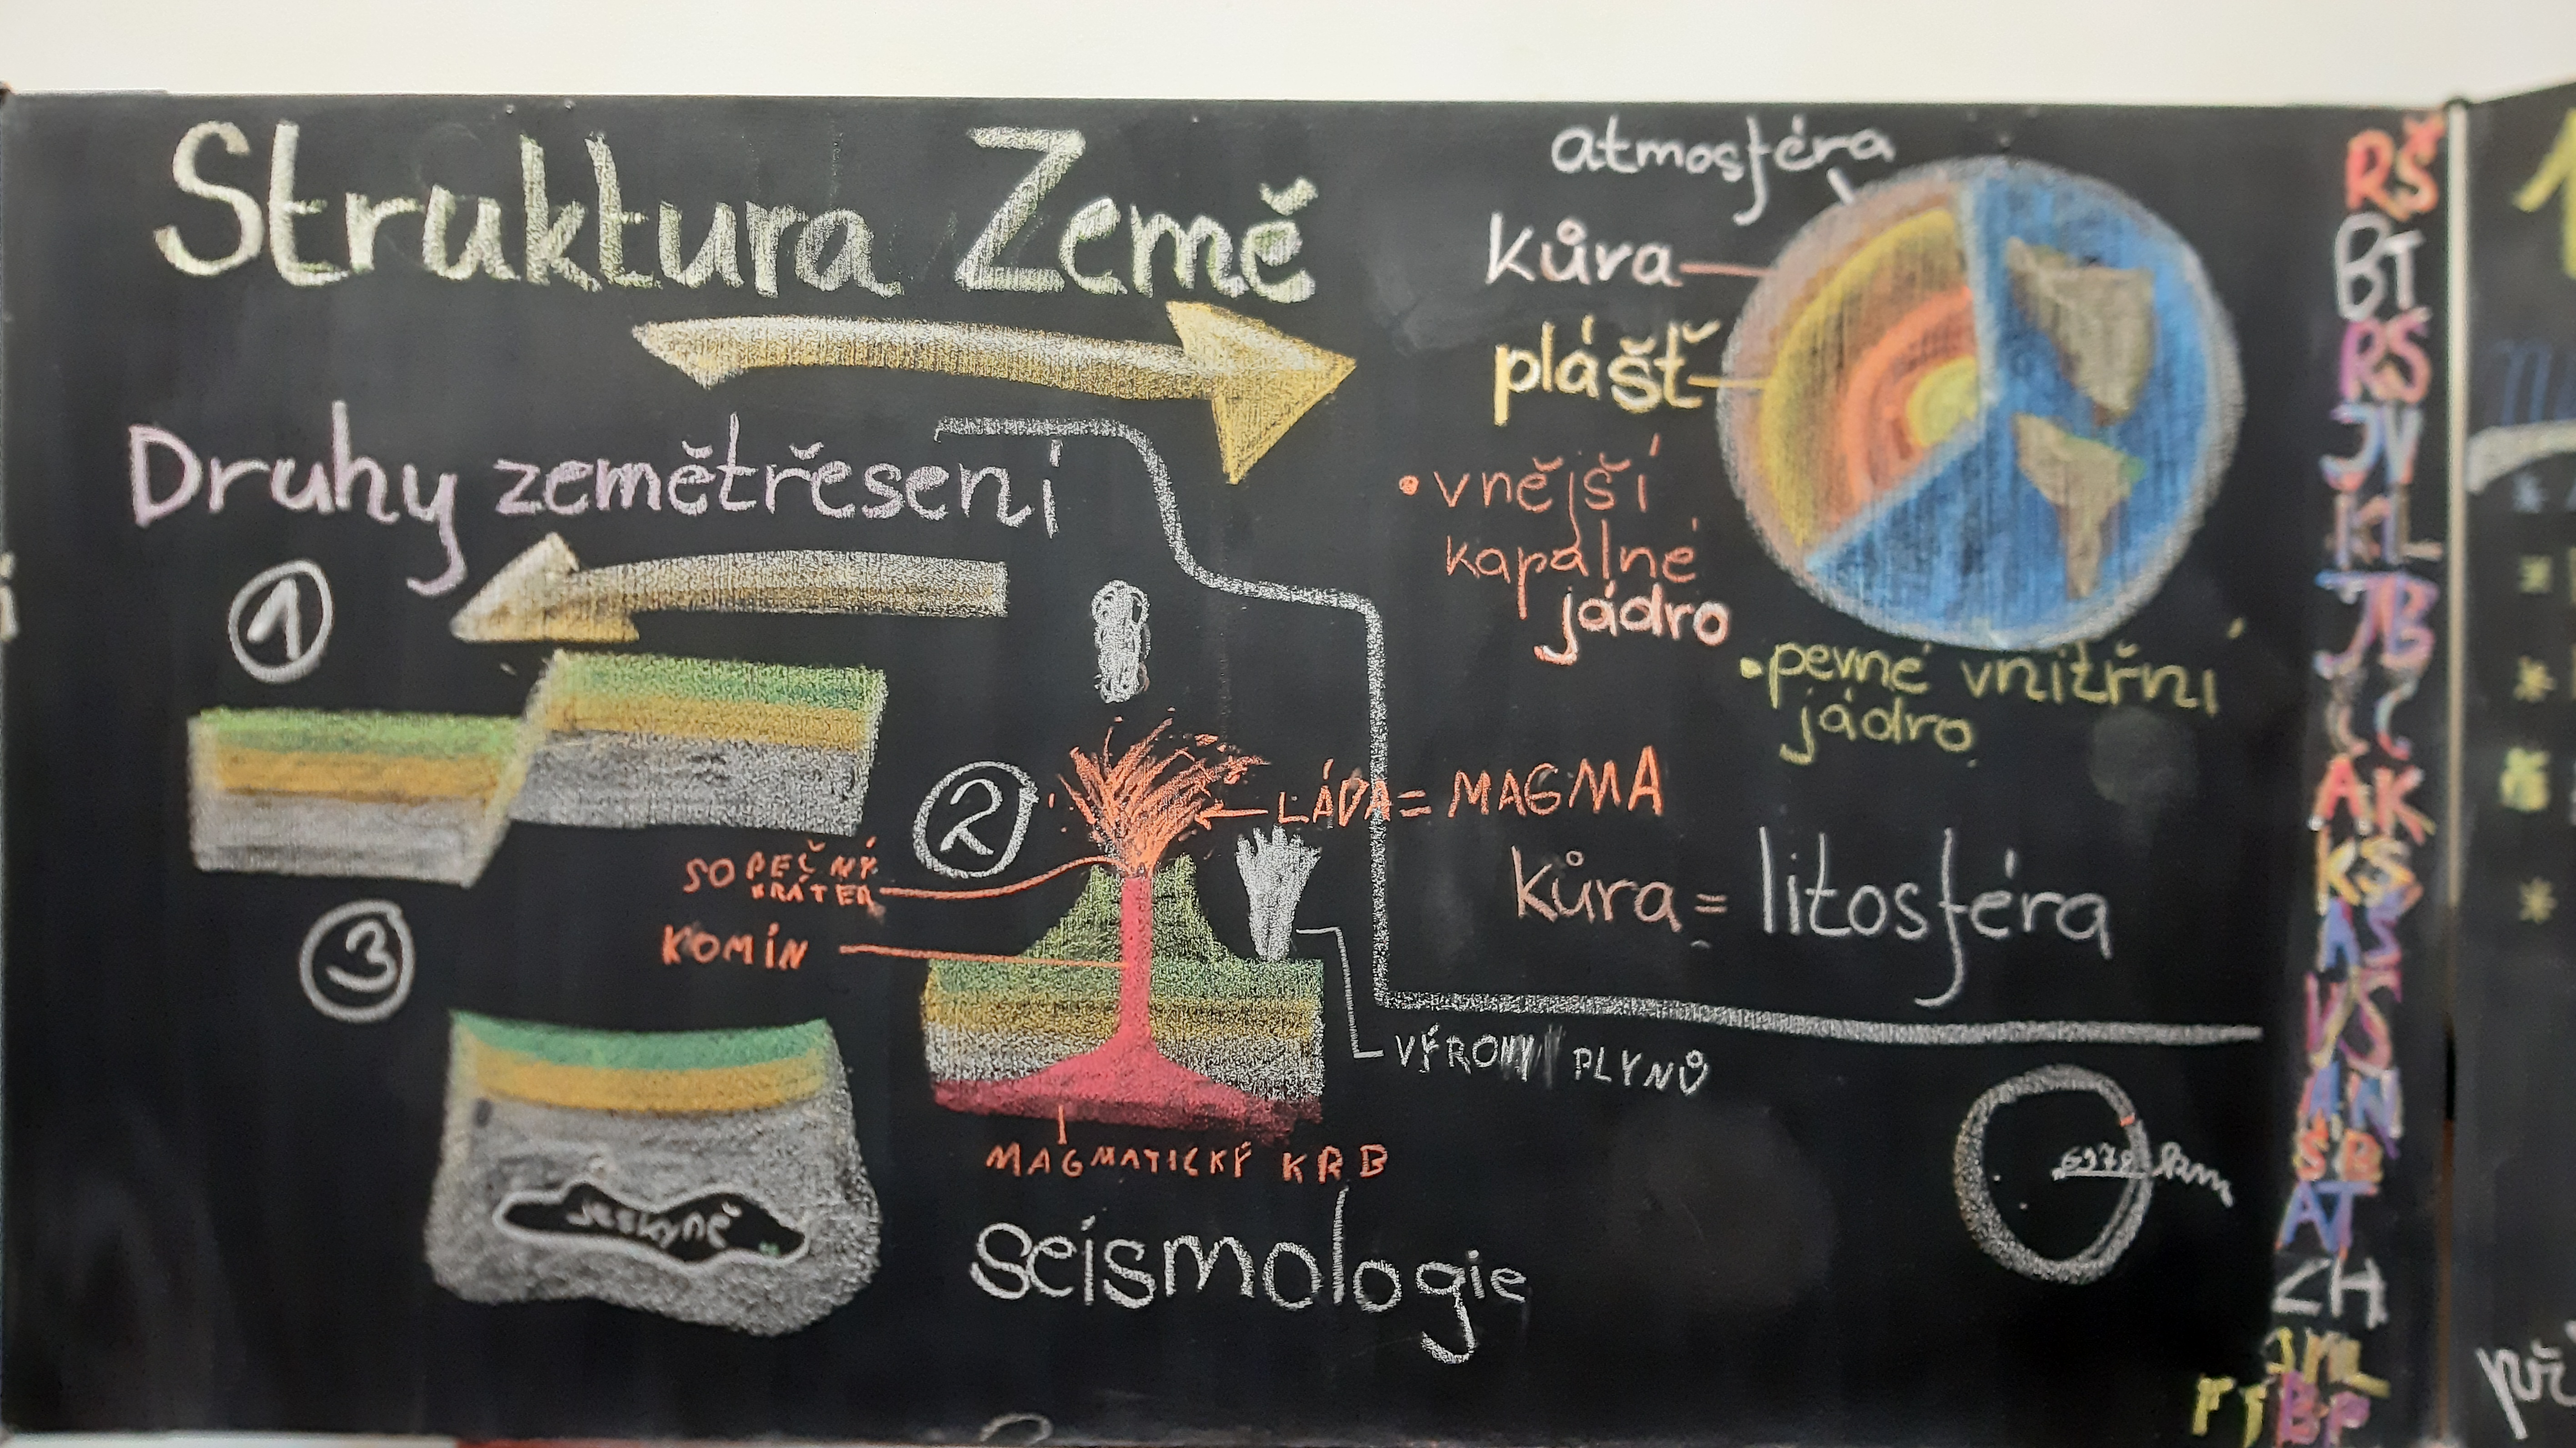 Struktura Země
Druhy zemětřesení
1
atmosféra
kůra
plášť
• vnější
kapalné
jádro
• pevné vnitřní
jádro
2
LÁVA = MAGMA
SOPEČNÝ
KRÁTER
KOMÍN
kůra = litosféra
3
VÝRONY PLYNŮ
MAGMATICKÝ KRB
jeskyně
seismologie
km
RŠ
BT
RŠ
JV
KL
JB
AK
KS
AS
VŠ
AN
AT
ZH
BP